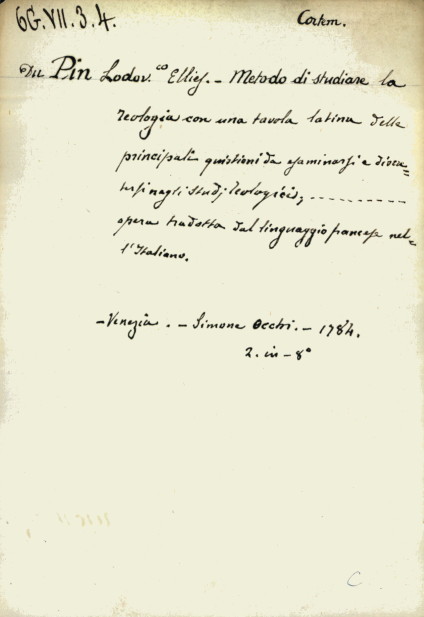 6G.VII.3.4. Cortem.
Du Pin Lodov.co Ellies. - Metodo di studiare la
Teologia con una tavola latina delle
principali quistioni da esaminarsi e discu=
tersi negli studj teologici; - - - - - - - - - -
opera tradotta dal linguaggio francese nel=
l'Italiano.
- Venezia. - Simone Occhi. - 1784.
2. in - 8°
C